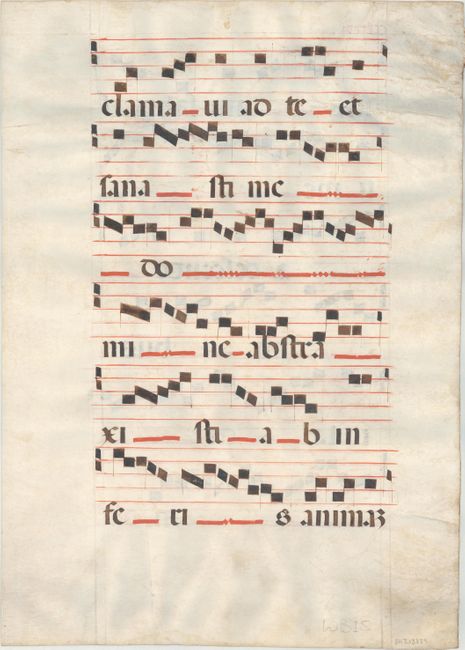 clama ui ad te et
sana sti me
do
mi ne abstra
xi sti a b in
fe ri s animaʒ